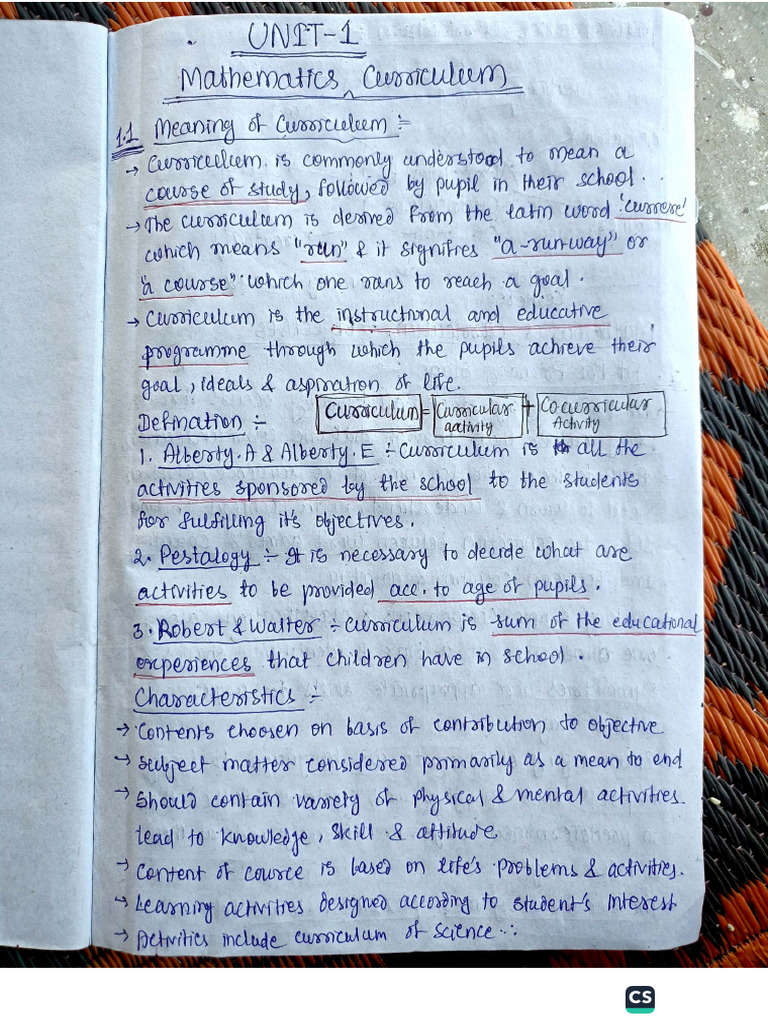 UNIT-1
Mathematics Curriculum
1.1 Meaning of Curriculum :-
→ Curriculum is commonly understood to mean a
course of study, followed by pupil in their school.
→ The curriculum is derived from the latin word 'currere'
which means "run" & it signifies "a-run-way" or
"a course" which one runs to reach a goal.
→ Curriculum is the instructional and educative
programme through which the pupils achieve their
goal, ideals & aspiration of life.
Defination ÷ Curriculum = Curricular activity + Cocurricular Activity
1. Alberty.A & Alberty.E ÷ Curriculum is all the
activities sponsored by the school to the students
for fulfilling it's objectives.
2. Pestalogy ÷ It is necessary to decide what are
activities to be provided acc. to age of pupils.
3. Robert & Walter ÷ Curriculum is sum of the educational
experiences that children have in school.
Characteristics ÷
→ Contents choosen on basis of contribution to objective
→ Subject matter considered primarily as a mean to end
→ Should contain variety of physical & mental activities.
lead to knowledge, skill & attitude
→ Content of cource is based on life's problems & activities.
→ Learning activities designed according to student's interest
→ Activities include curriculum of science.
CS